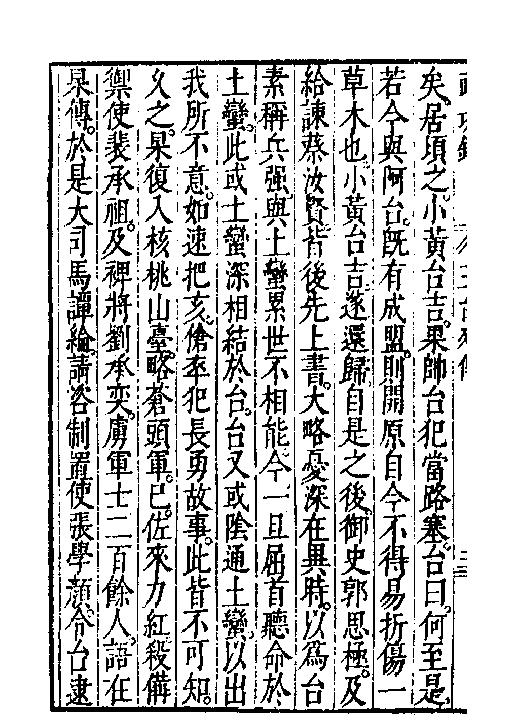 矣居頃之小黃台吉果帥台犯當路塞台曰何至是
若今與阿台既有成盟則開原自今不得易折傷一
草木也小黃台吉遂還歸自是之後御史郭思極及
給諫蔡汝賢皆後先上書大略憂深在異時以爲台
素稱兵强與土蠻累世不相能今一旦屈首聽命於
土蠻此或土蠻深相結於台台又或陰通土蠻以出
我所不意如速把亥傖卒犯長勇故事此皆不可知
久之杲復入核桃山臺略蒼頭軍已佐來力紅殺備
禦使裴承祖及裨將劉承奕虜軍士二百餘人語在
杲傳於是大司馬譚綸請咨制置使張學顏令台逮